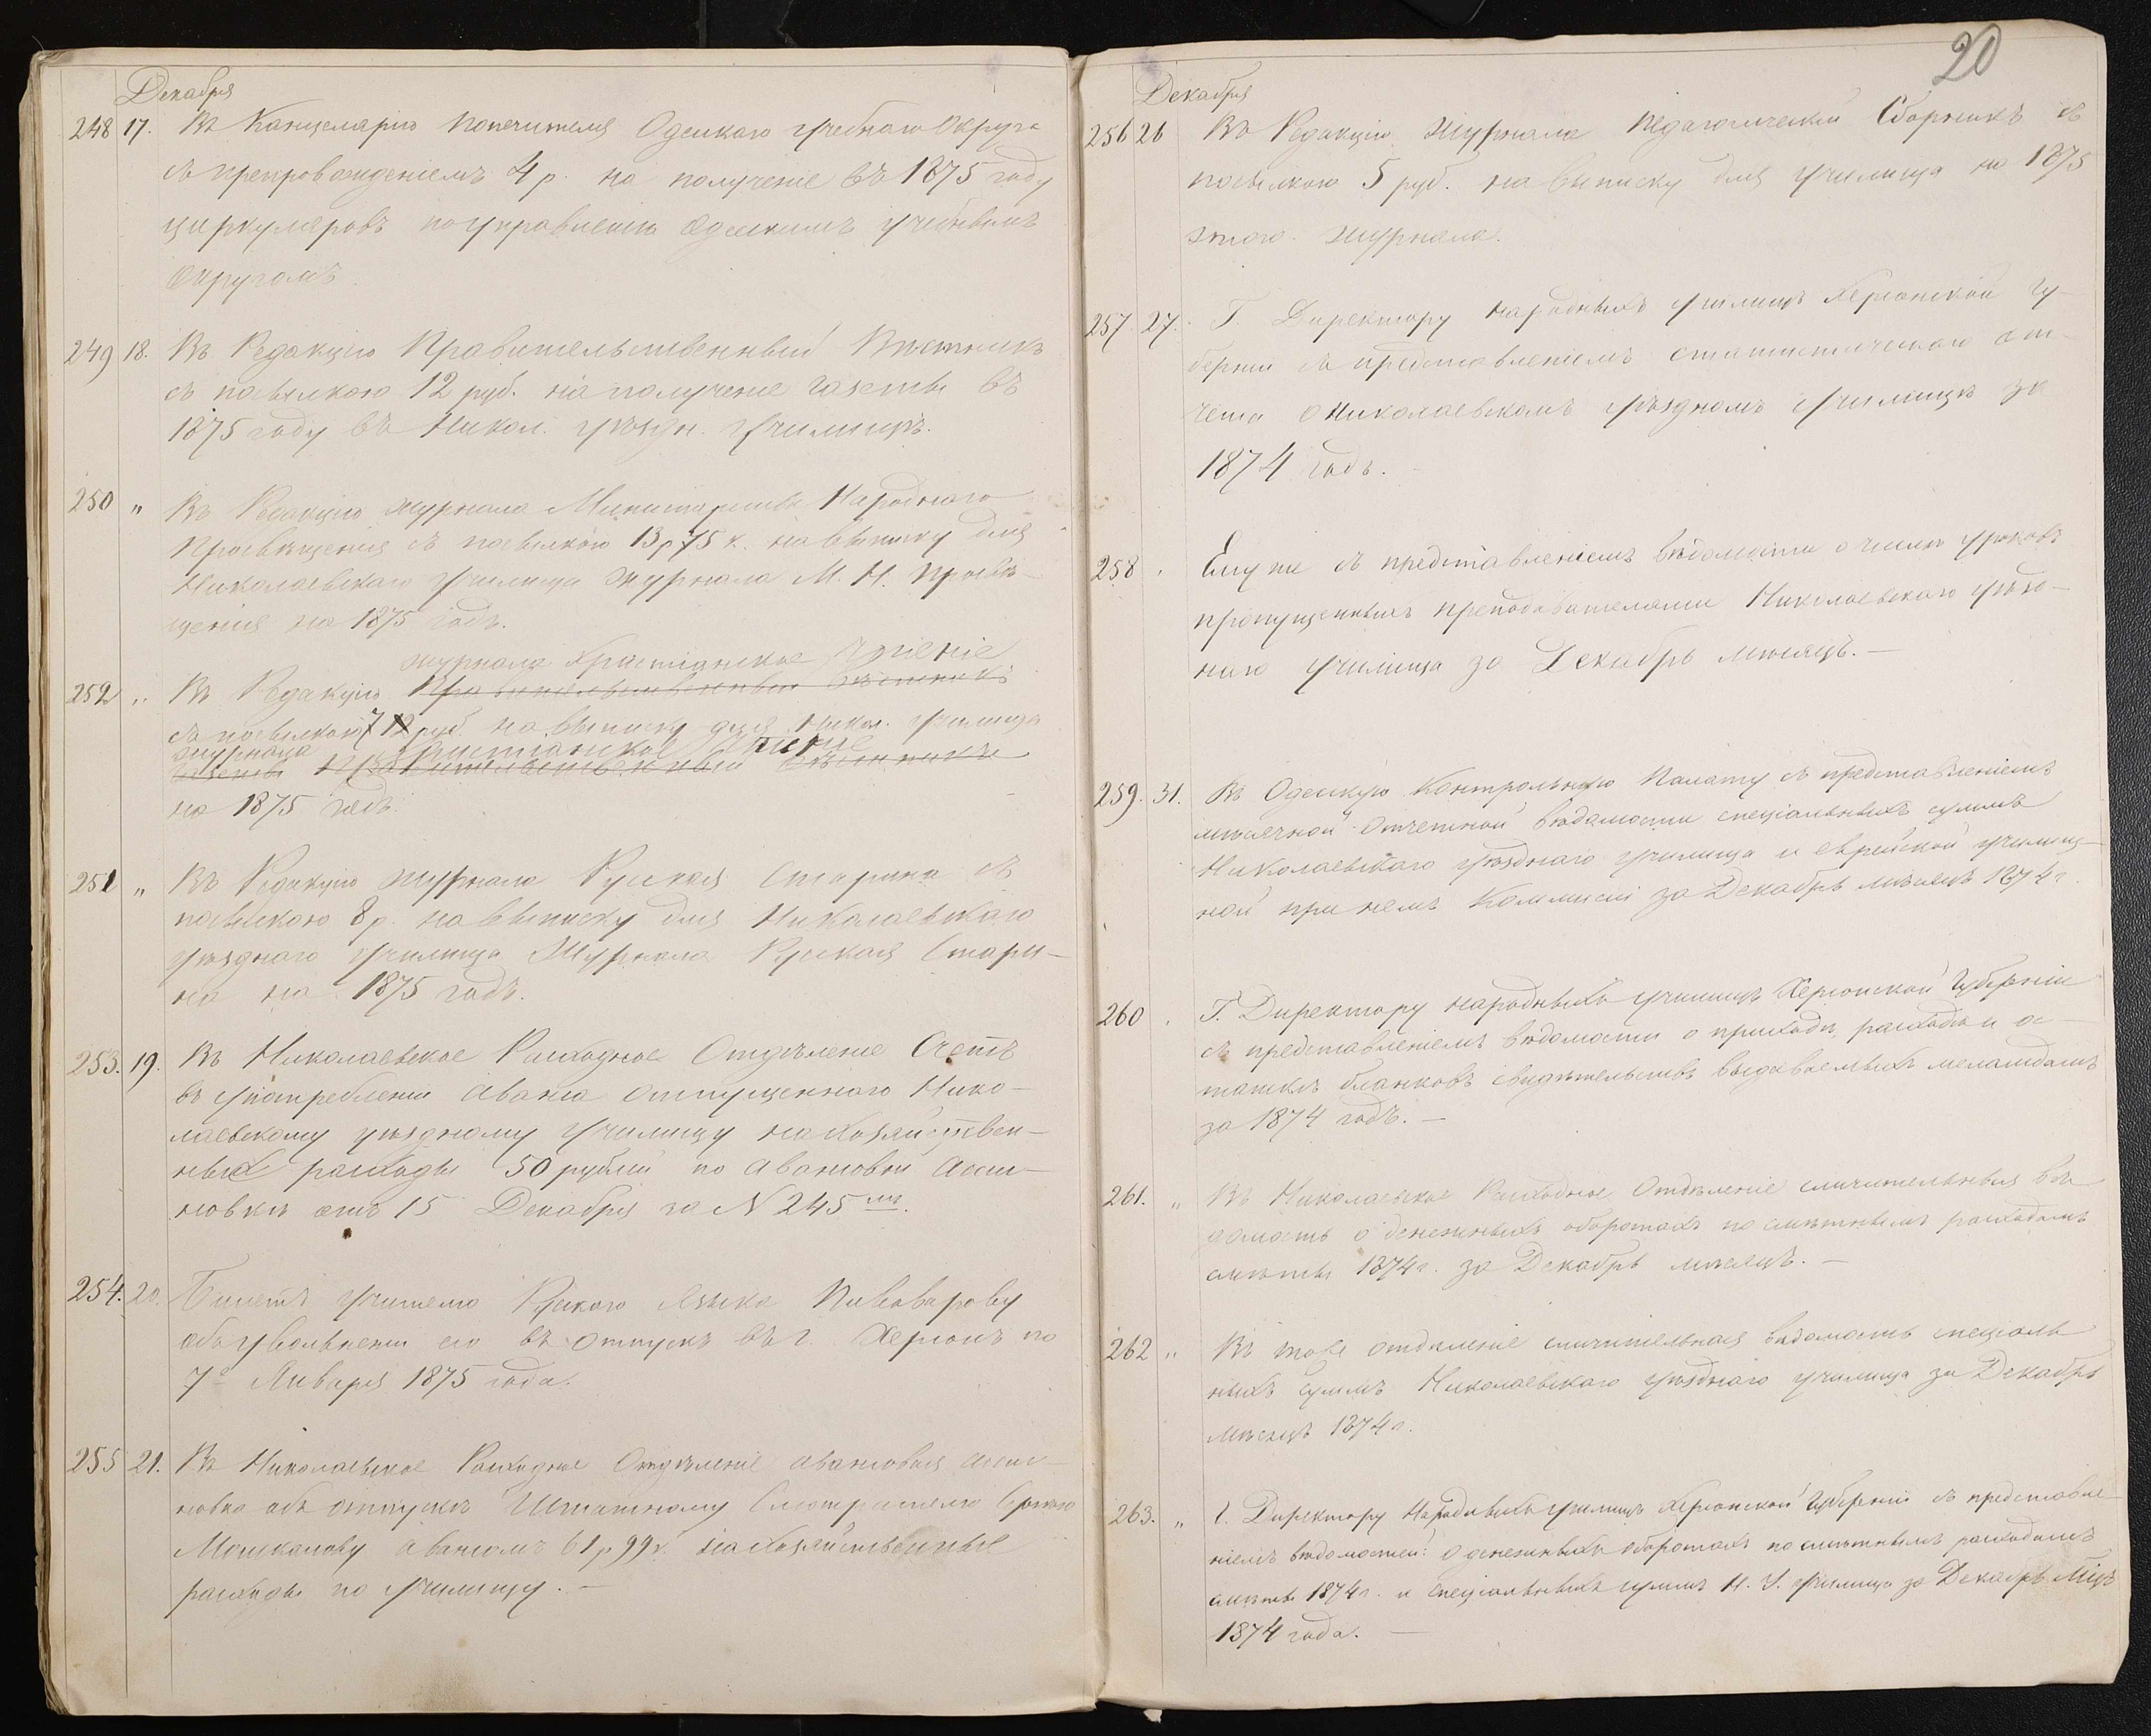 Декабря
248 17. Въ Канцелярію Попечителя Одескаго Учебнаго Округа
съ препровожденіемъ 4 р. на полученіе въ 1875 году
циркуляровъ по управленію Одескимъ учебнымъ
Округомъ.
249 18. Въ Редакцію Правительственный Вѣстникъ
съ посылкою 12 руб. на полученіе газеты въ
1875 году въ Никол. уѣздн. Училищѣ.
250 " Въ Редакцію журнала Министерства Народнаго
Просвѣщенія съ посылкою 13 р 75 к. на выписку для
Николаевскаго училища журнала М. Н. Просвѣ-
щенія на 1875 годъ.
журнала Христіанское Чтеніе
252 " Въ Редакцію Правительственный Вѣстникъ
съ посылкою 7 руб. на выписку для Никол. училища
журнала Христіанское Чтеніе
газеты Правительственный Вѣстникъ
на 1875 годъ.
251 " Въ Редакцію журнала Руская Старина съ
посылкою 8 р. на выписку для Николаевскаго
уѣзднаго училища Журнала Руская Стари-
на на 1875 годъ.
253. 19. Въ Николаевское Расходное Отдѣленіе Счетъ
въ употребленіи аванса отпущеннаго Нико-
лаевскому уѣздному училищу на хозяйствен-
ные расходы 50 рублей по авансовой ассиг-
новкѣ отъ 15 Декабря за N 245 мъ.
254. 20. Билетъ учителю Рускаго Языка Пивоварову
объ увольненіи его въ отпускъ въ г. Херсонъ по
7е Января 1875 года.
255 21. Въ Николаевское Расходное Отдѣленіе авансовая ассиг-
новка объ отпускѣ Штатному Смотрителю
Мошкалову авансомъ 61 р 99 к. на хозяйственные
расходы по училищу. —
20
Декабря
256 26 Въ Редакцію Журнала Педагогическій Сборникъ съ
посылкою 5 руб. на выписку для училища на 1875
этого журнала.
257. 27. Г. Директору народныхъ училищъ Херсонской Гу-
берніи съ представленіемъ статистическаго от-
чета о Николаевскомъ уѣздномъ училищѣ за
1874 годъ.
258 Ему же съ представленіемъ вѣдомости о числѣ уроковъ
пропущенныхъ преподавателями Николаевскаго уѣзд-
наго училища за Декабрь мѣсяцъ. —
259. 31. Въ Одескую Контрольную Палату съ представленіемъ
мѣсячной отчетной вѣдомости спеціальныхъ суммъ
Николаевскаго уѣзднаго училища и еврейской училищ-
ной при немъ Коммисіи за Декабрь мѣсяцъ 1874 г.
260 Г. Директору народныхъ училищъ Херсонской Губерніи
съ представленіемъ вѣдомости о приходѣ, расходѣ и ос-
таткѣ бланковъ свидѣтельствъ выдаваемыхъ меламдамъ
за 1874 годъ. —
261. " Въ Николаевское Расходное Отдѣленіе сличительныя вѣ-
домость о денежныхъ оборотахъ по смѣтнымъ расходамъ
смѣты 1874 г. за Декабрь мѣсяцъ. —
262 " Въ тоже отдѣленіе сличительная вѣдомость спеціаль
ныхъ суммъ Николаевскаго уѣзднаго училища за Декабрь
мѣсяцъ 1874 г.
263. " Г. Директору Народныхъ училищъ Херсонской Губерніи съ представле-
ніемъ вѣдомостей: о денежныхъ оборотахъ по смѣтнымъ расходамъ
смѣты 1874 г. и спеціальныхъ суммъ Н. У. Училища за Декабрь мѣцъ
1874 года. —